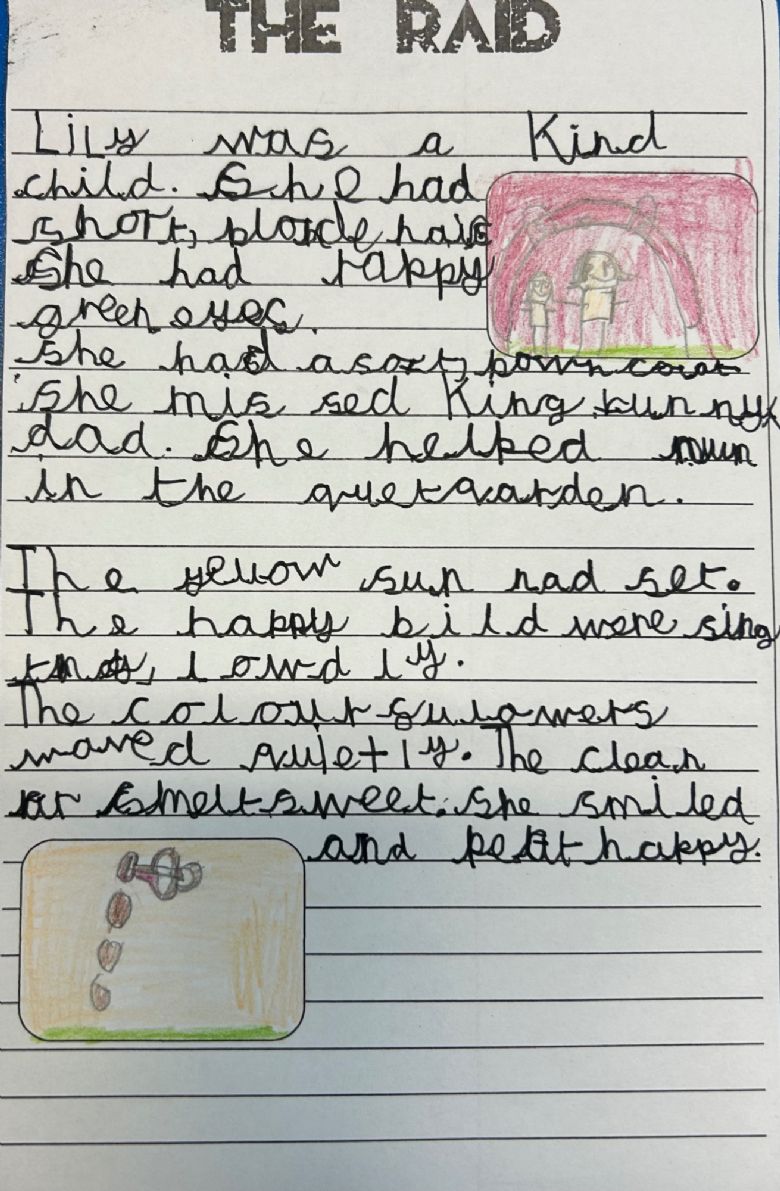 THE RAID
Lily was a Kind
child. She had
short, blonde hair
She had happy
green eyes.
She had a soft, brown coat
She mis sed King funny
dad. She helped mum
in the quet garden.
The yellow sun had set.
The happy bild were sing
loudly.
The colour flowers
waved quietly. The clean
air smelt sweet. She smiled
and felt happy.